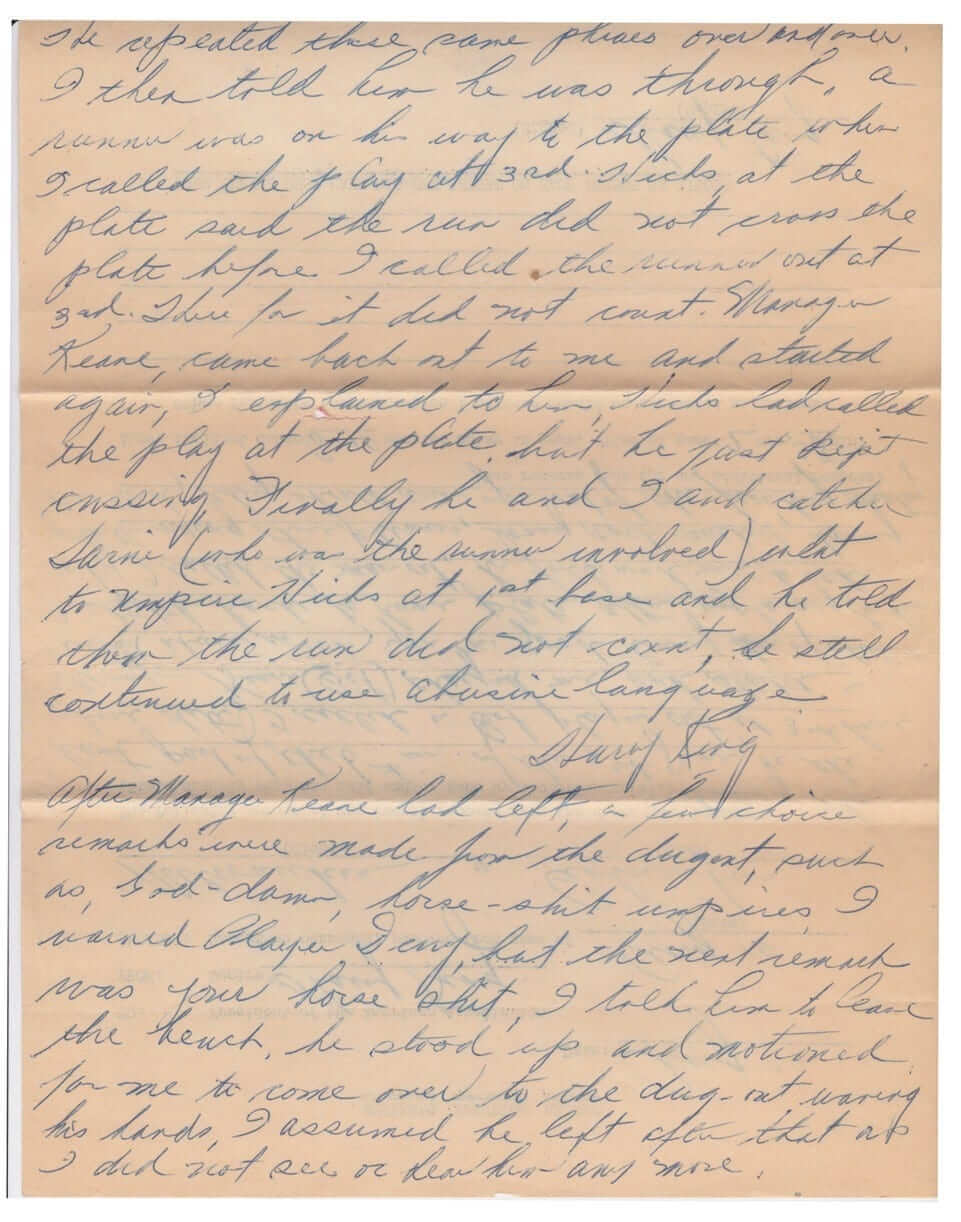 He repeated these same phrases over and over.
I then told him he was through, a
runner was on his way to the plate when
I called the play at 3rd. Hicks, at the
plate said the run did not cross the
plate before I called the runner out at
3rd. There for it did not count. Manager
Keane, came back out to me and started
again, I explained to him, Hicks had called
the play at the plate, but he just kept
cussing, Finally he and I and catcher
Sarni (who was the runner involved) went
to Umpire Hicks at 1st base and he told
them the run did not count, he still
continued to use abusive language
Harry King
After Manager Keane had left, a few choice
remarks were made from the dugout, such
as, God-damn, horse-shit umpires, I
warned Player Deny, but the next remark
was your horse shit, I told him to leave
the bench, he stood up and motioned
for me to come over to the dug-out waving
his hands, I assumed he left after that as
I did not see or hear him any more.